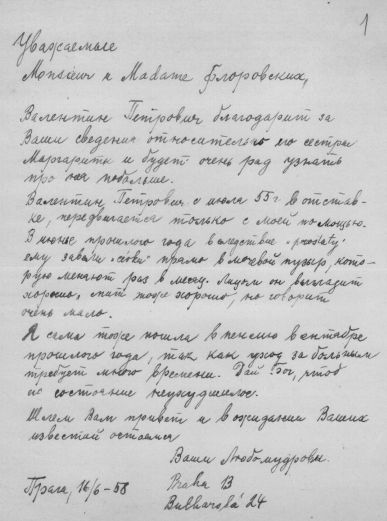 1
Уважаемые
Monsieur и Madame Флоровских,
Валентин Петрович благодарит за
Ваши сведения относительно его сестры
Маргариты и будет очень рад узнать
про нея побольше.
Валентин Петрович с июля 55 г. в отстав-
ке, передвигается только с моей помощью.
В июне прошлого года вследствие "prostaty"
ему завели прямо в мочевой пузырь, кото-
рую меняют раз в месяц. Лицом он выглядит
хорошо, спит тоже хорошо, но говорит
очень мало.
Я сама тоже пошла в пенсию в октябре
прошлого года, так как уход за больным
требует много времени. Дай Бог, чтоб
состояние неухудшилось.
Шлем Вам привет и в ожидании Ваших
известий остаемся
Ваши Любомудровы.
Прага, 16/6-58
Praha 13
Bulharská 24